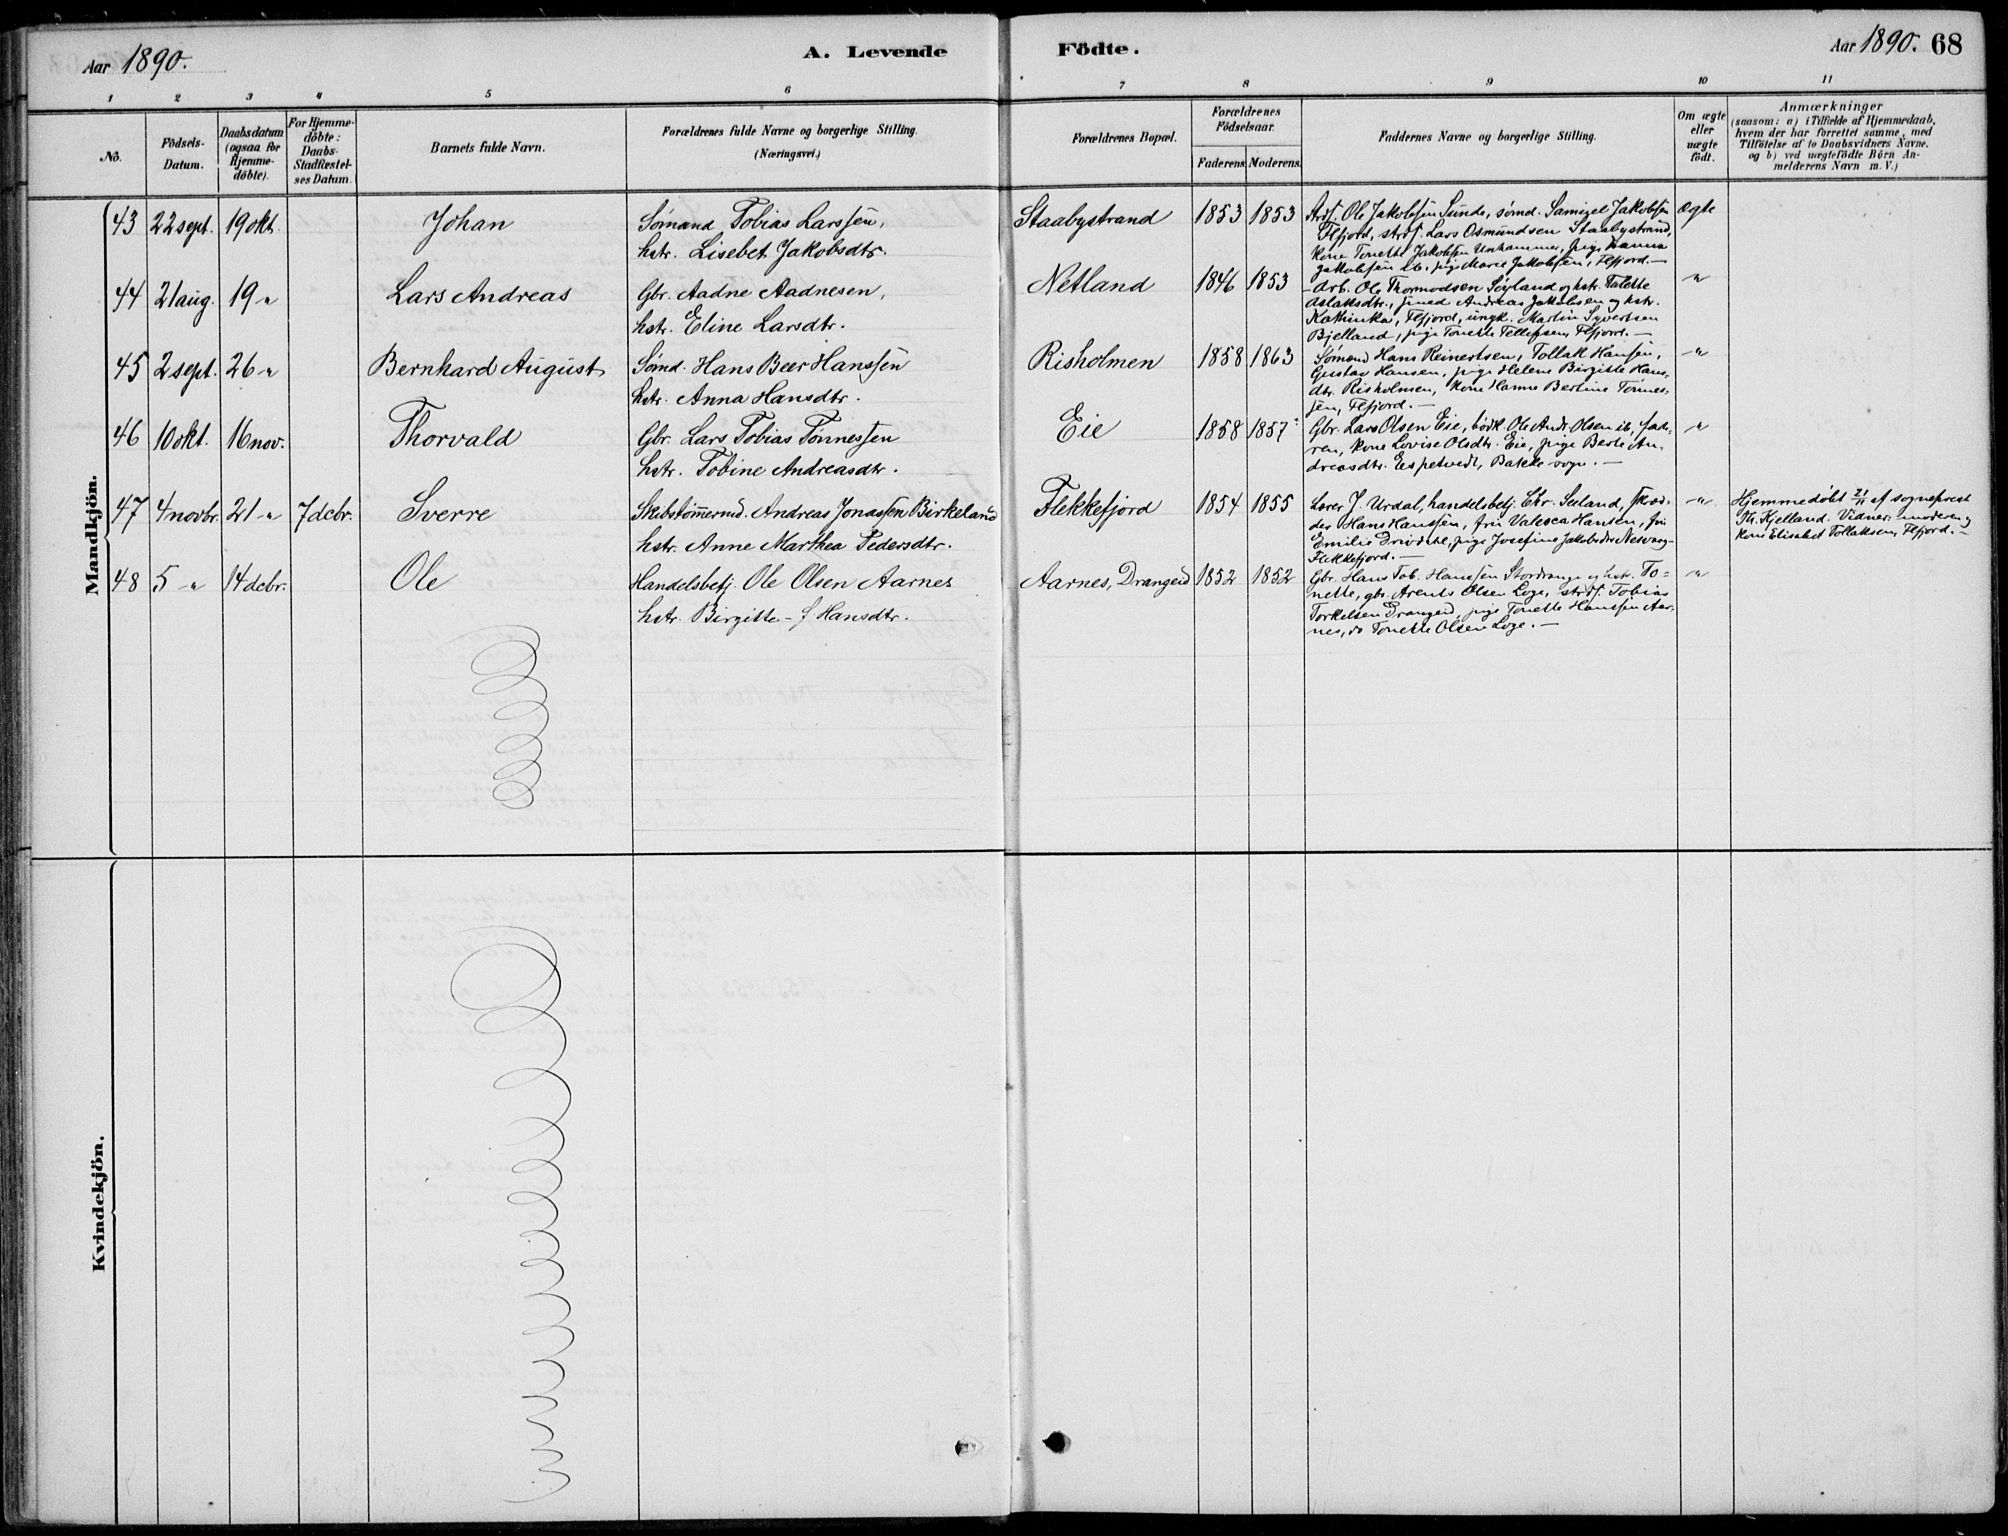 Aar 1890.
A. Levende
Födte.
Aar 1890. 68
1 2 3 4 5 6 7 8 9 10 11
No.
Födsels-
Datum.
Daabsdatum
(ogsaa for
Hjemme-
döbte).
For Hjemme-
döbte:
Daabs-
Stadfæstel-
ses Datum.
Barnets fulde Navn.
Forældrenes fulde Navne og borgerlige Stilling.
(Næringsvei.)
Forældrenes Bopæl.
Forældrenes
Födselsaar.
Faderens. Moderens.
Faddernes Navne og borgerlige Stilling.
Om ægte
eller
uægte
födt.
Anmærkninger
(saasom: a) i Tilfælde af Hjemmedaab,
hvem der har forrettet samme, med
Tilföielse af to Daabsvidners Navne,
og b) ved uægtefödte Börn An-
melderens Navn m. V.)
Mandkjön.
43 22 sept. 19 okt. Johan
Sømand Tobias Larssen,
hstr. Lisebet Jakobsdtr.
Staabystrand 1853 1853
Strdf. Ole Jakobsen Sunde, sømd. Samuel Jakobsen
Flfjord, strdf. Lars Osmundsen Staabystrand,
kone Tonette Jakobsen Unhammer, pige Hanna
Jakobsen ib., pige Marie Jakobsen, Flfjord. —
Ægte
44 21 aug. 19 " Lars Andreas
Gbr. Aadne Aadnesen,
hstr. Eline Larsdtr.
Netland 1846 1853
Arb. Ole Thormodsen Söyland og hstr. Talette
Aslaksdtr., smed Andreas Jakobsen og hstr.
Kathinka, Flfjord, ungk. Martin Syvertsen
Bjelland, pige Tonette Tellefsen, Flfjord. —
"
45 2 sept. 26 " Bernhard August
Sömd. Hans Beer Hanssen
hstr. Anna Hansdtr.
Risholmen 1858 1863
Sömand Hans Reinertsen, Tollak Hansen,
Gustav Hansen, pige Helene Birgitte Hans-
dtr. Risholmen, kone Hanne Bertine Tönnes-
sen, Flfjord. —
"
46 10 okt. 16 nov. Thorvald
Gbr. Lars Tobias Tönnessen
hstr. Tobine Andreasdtr.
Eie 1858 1857
Gbr. Lars Olsen Eie, bödk. Ole Andr. Olsen ib, fade-
ren, kone Lovise Olsdtr. Eie, pige Berte An-
dreasdtr. Espetvedt, Bakke sogn. —
"
47 4 novbr. 21 " 7 dcbr. Sverre
Skibstømmermd. Andreas Jonassen Birkeland
hstr. Anne Marthea Pedersdtr.
Flekkefjord 1854 1855
Lærer J. Urdal, handelsbetj. Chr. Seland, skræd-
der Hans Hanssen, fru Valesca Hansen, fru
Emilie, pige Josefine Jakobsdtr Nesvaag
Flekkefjord. —
"
Hjemmedöbt 21/11 af sogneprest
Th. Kjelland. Vidner: moderen og
kone Elisabet Tollaksen, Flfjord. —
48 5 " 14 dcbr. Ole
Handelsbetj. Ole Olsen Aarnes
hstr. Birgitte f. Hansdtr.
Aarnes, Drangeid 1852 1852
Gbr. Hans Tob. Hanssen Stordrange og hstr. To-
nette, gbr. Arents Olsen Loge, strdf. Tobias
Torkelsen Drangeid, pige Tonette Hanssen Aar-
nes, do Tonette Olsen Loge. —
"
Kvindekjön.